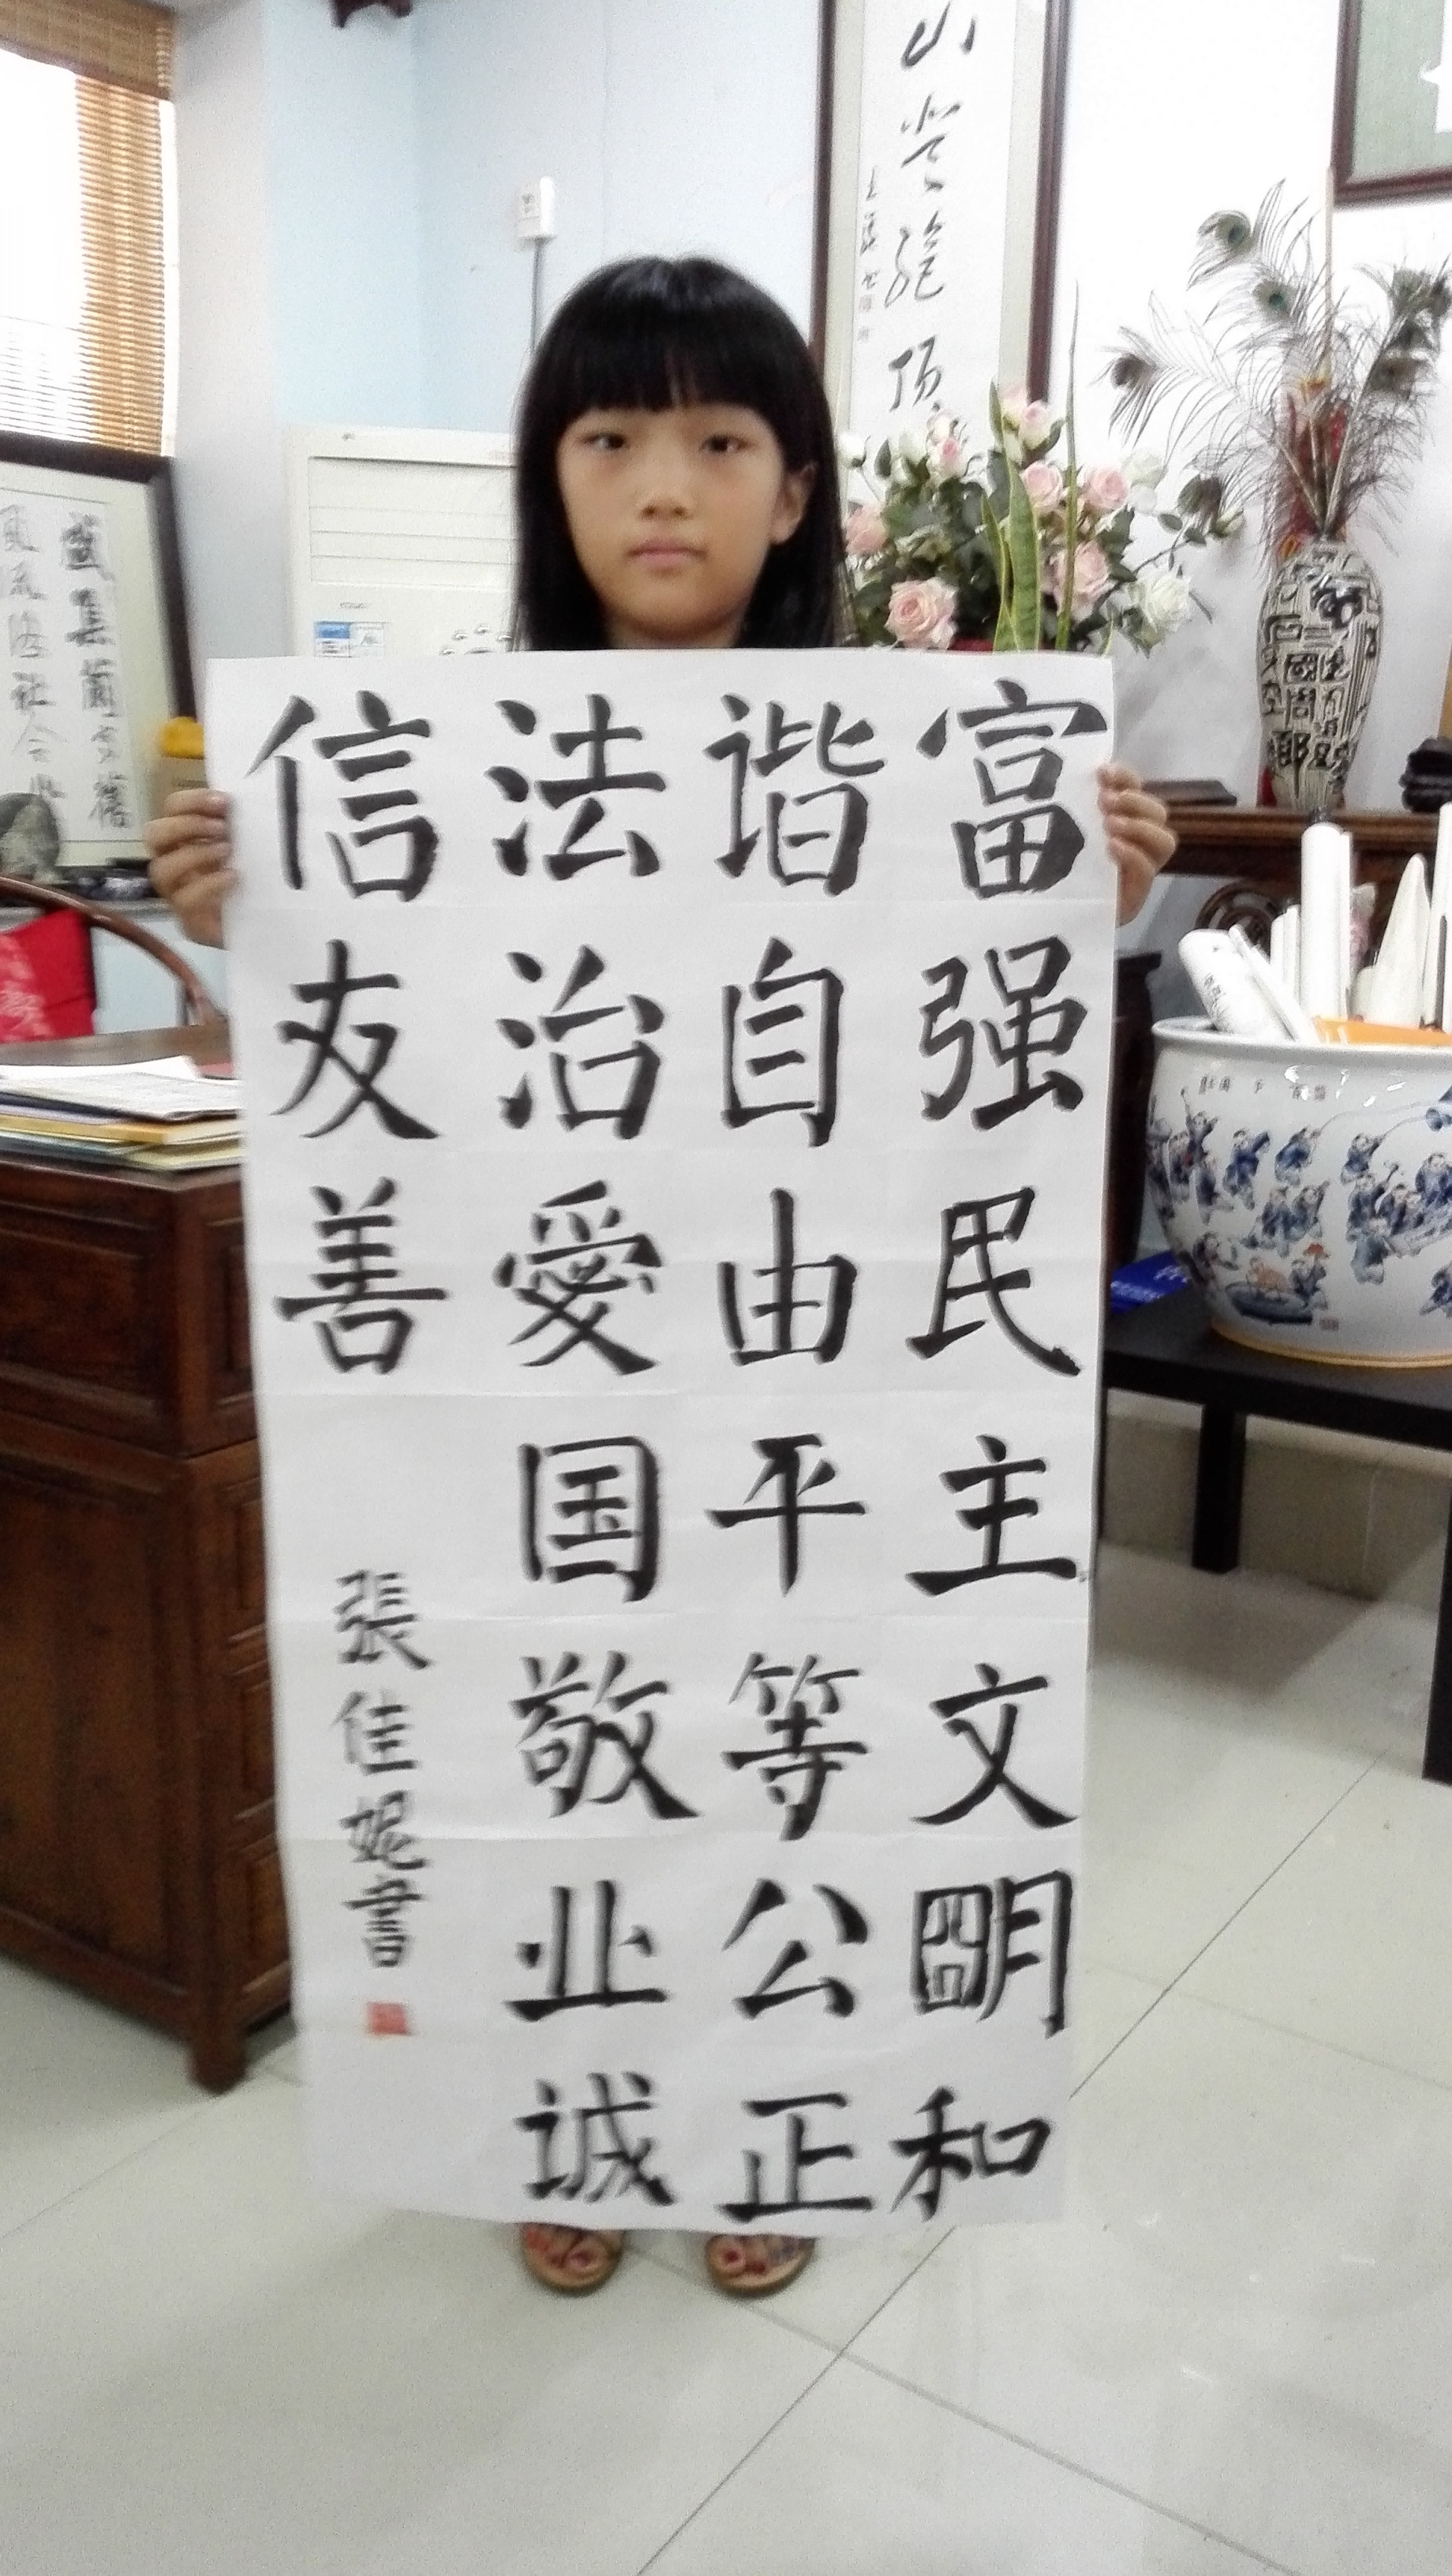 富强民主文明和
谐自由平等公正
法治愛国敬业诚
信友善
張佳妮書
山登絶顶